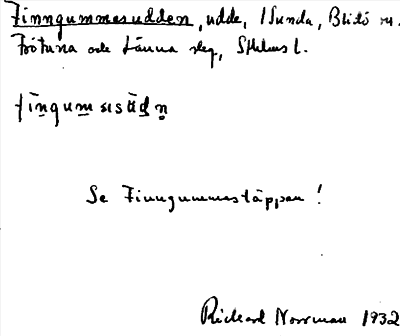 Finngummesudden, udde, i Sunda, Blidö sn.
Frötuna och Länna slg, Sthlms l.
Se Finngummestäppan!
Rickard Norrman 1932